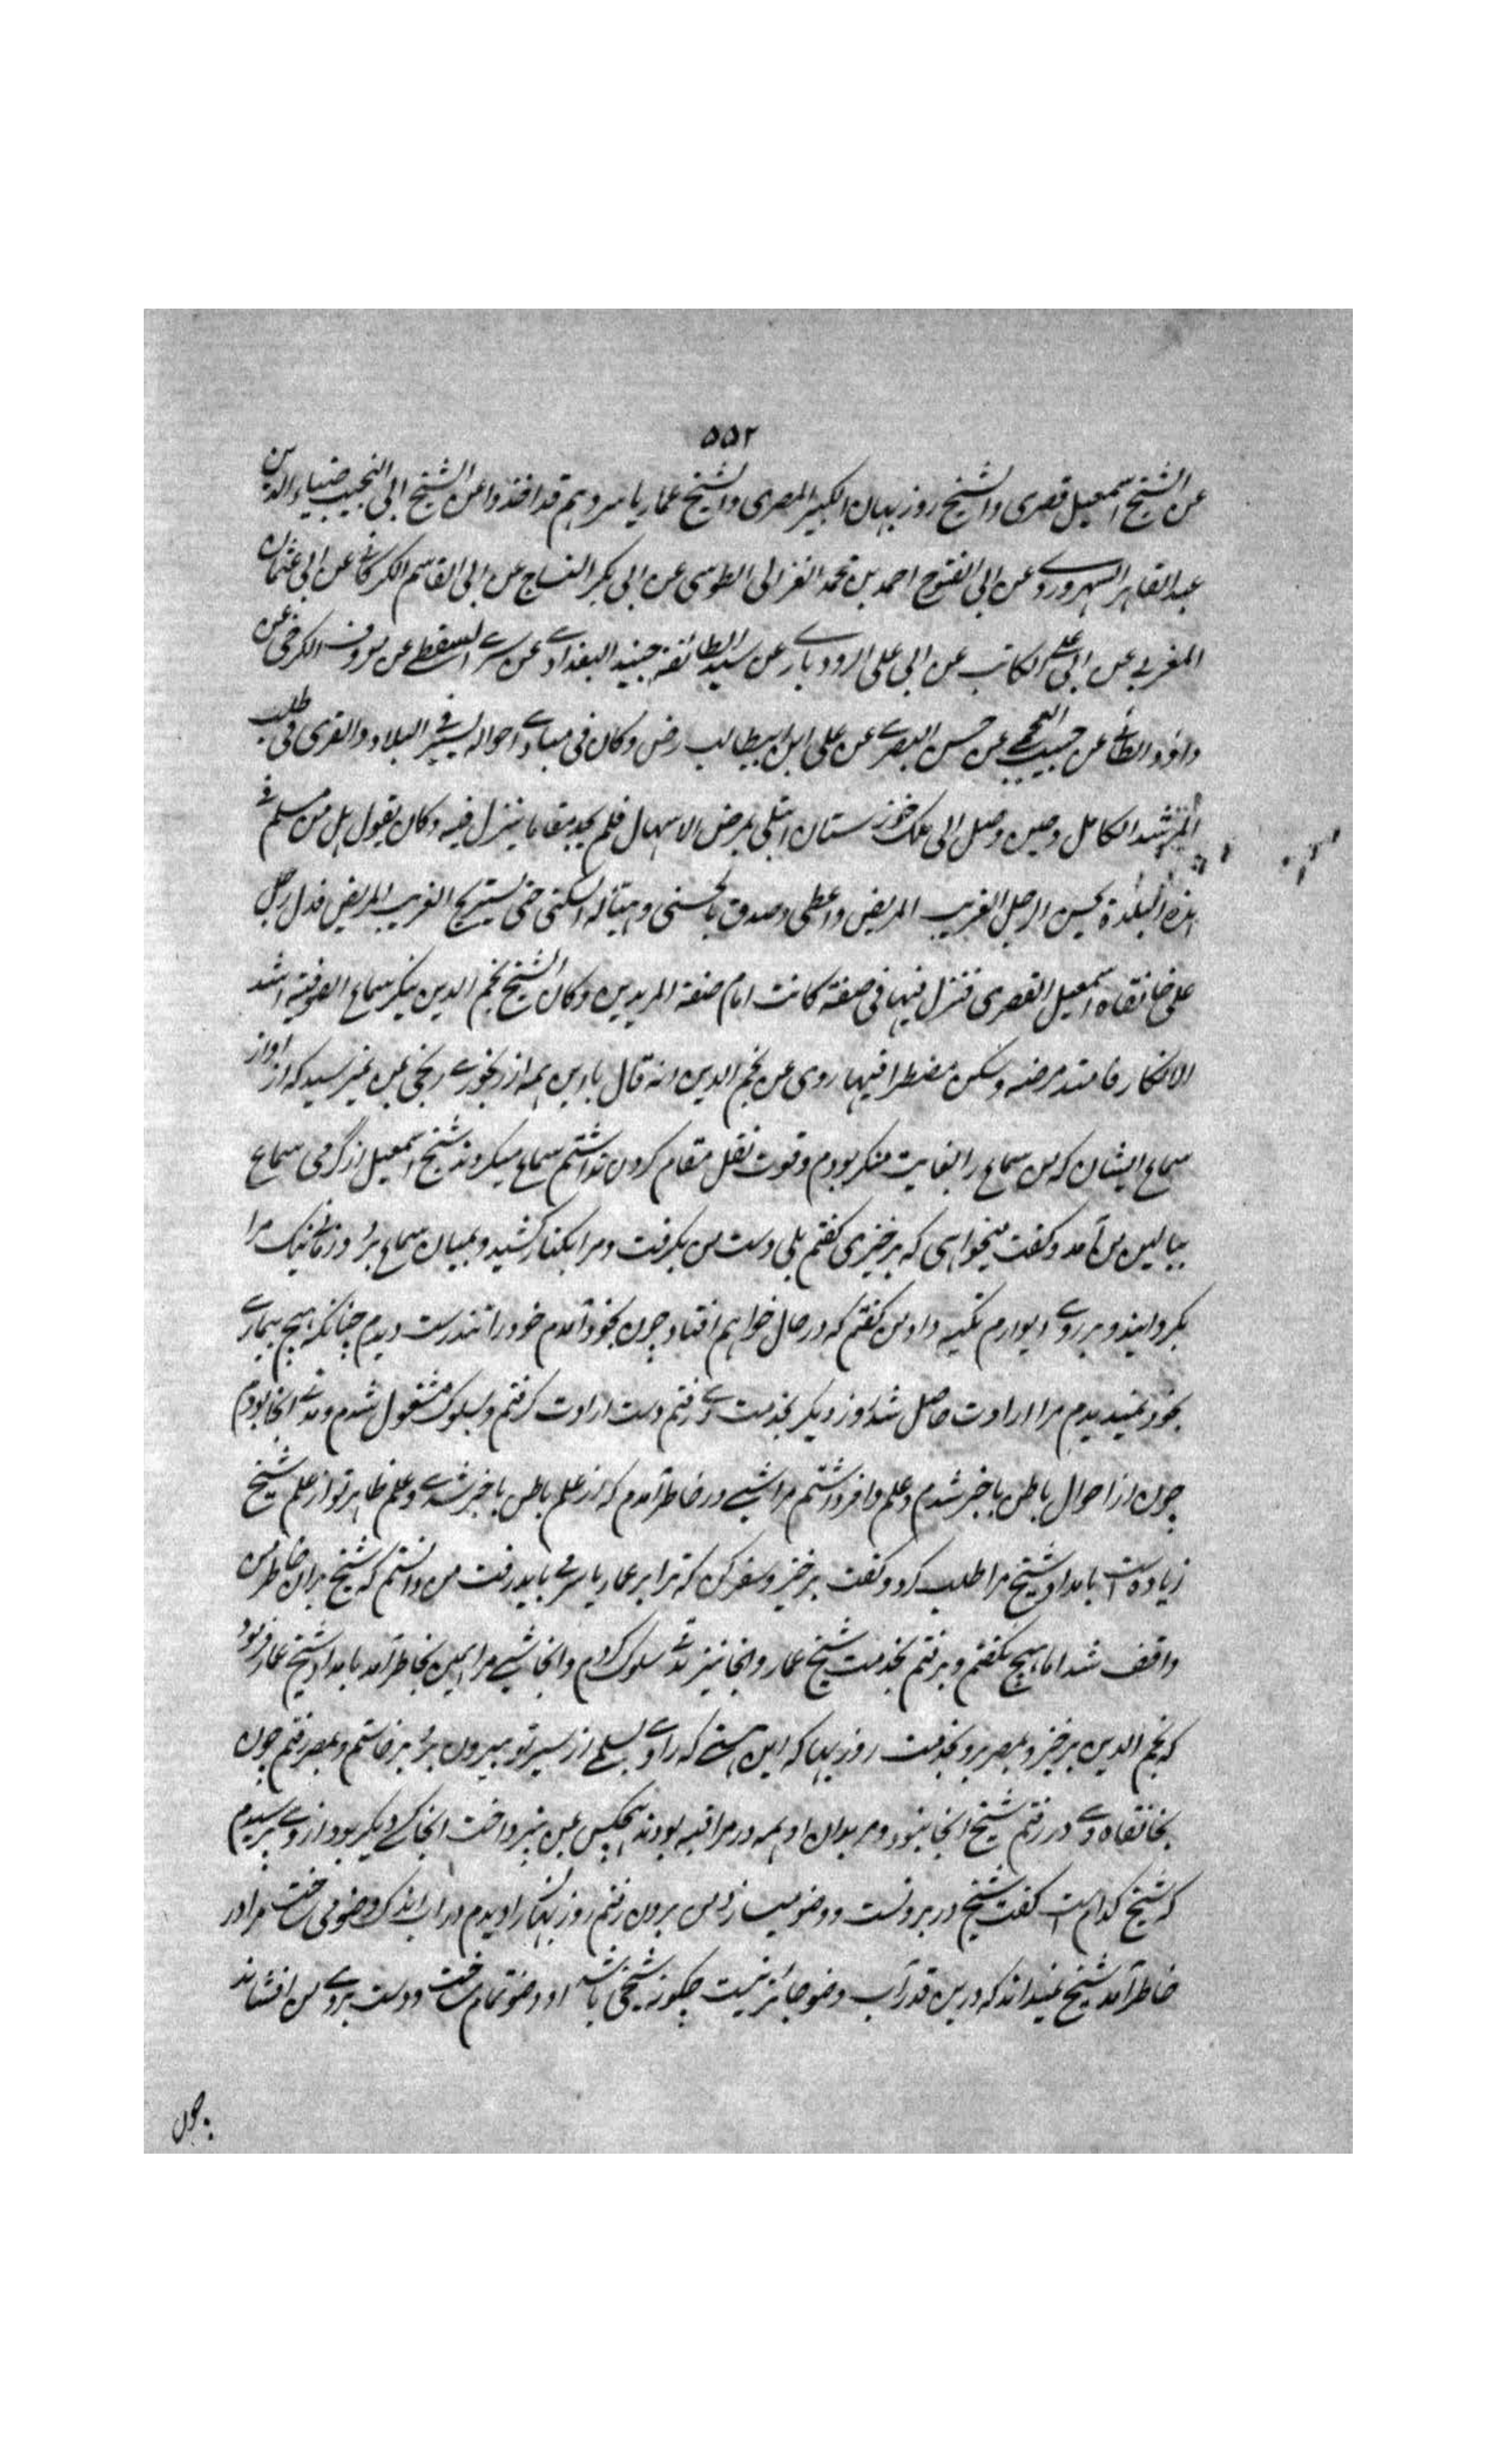 ۵۵۲
عن الشیخ اسمعیل قصری والشیخ روزبهان الکبیر المصری والشیخ عمار یاسر وهم قد اخذوا عن الشیخ ابی النجیب ضیاء الدین
عبد القاهر السهروردے وعن ابی الفتوح احمد بن محمد الغزالی الطوسی عن ابی بکر النساج عن ابی القاسم الکرکانے عن ابی عثمان
المغربی عن ابی علی الکاتب عن ابی علی الرودبارے عن سید الطائفة جنید البغدادے عن سرے السقطے عن معروف الکرخی عن
داؤد الطائے عن حبیب العجمے عن حسن البصرے عن علی ابن ابیطالب رض وکان فی مبادے احواله یسیر فے البلاد والقری فی طلب
المرشد الکامل وحین وصل الی ملک خوزستان ابتلی بمرض الاسهال فلم یجد مقاما ینزل فیه وکان یقول هل من مسلم فے
هذه البلدة یحسن الرجل الغریب المریض واعطی وصدق بالحسنی وهیئا له السکنی حتی یستریح الغریب المریض فدل رجل
علی خانقاه اسمعیل القصری فنزل فیها فی صفة کانت امام صفة المریدین وکان الشیخ نجم الدین ینکر سماع الصوفیة اشد
الانکار فامتد مرضه وسکن مضطرا فیها روی عن نجم الدین انه قال با این همه از رنجورے رنجی بمن نمیرسید که از آواز
سماع ایشان که من سماع را بغایت منکر بودم وقوت نقل مقام کردن نداشتم سماع میکردند شیخ اسمعیل از گرمی سماع
ببالین من آمد وکفت میخواهی که برخیزی کفتم بلی دست من بکرفت ومرا بکنار کشید وبمیان سماع برد وزمانے نیک مرا
بکردانید وبر روے دیوارم تکیه داد من کفتم که در حال خواهم افتاد چون بخود آمدم خود را تندرست دیدم چنانکه هیچ بیمارے
بخود نمیدیدم مرا ارادت حاصل شد روز دیکر بخدمت وے رفتم دست ارادت کرفتم وبسلوک مشغول شدم ومدتے آنجا بودم
چون از احوال باطن باخبر شدم وعلم وافر داشتم مرا شبے در خاطر آمدم که از علم باطن باخبر شدے وعلم ظاهر تو از علم شیخ
زیادهست بامداد شیخ مرا طلب کرد وکفت برخیز وسفر کن که ترا بر عمار یاسر مے باید رفت من دانستم که شیخ بران خاطر من
واقف شد اما هیچ نکفتم وبرفتم بخدمت شیخ عمار وانجا نیز مدتے سلوک کردم وانجا شبے مرا همین بخاطر آمد بامداد شیخ عمار فرمود
که نجم الدین برخیز وبمصر برو بخدمت روزبهان که این هستے که را وے بسیلے از سر تو بیرون برد برخاستم وبمصر رفتم چون
بخانقاه وے در رفتم شیخ انجا نبود ومریدان او همه در مراقبه بودند هیچکس بمن نپرداخت انجا کسے دیکر بود از وے پرسیدم
که شیخ کدام است کفت شیخ در بیرونست ووضو میسازد من برون رفتم روزبهان را دیدم در آب اندک وضو می ساخت مرا در
خاطر آمد شیخ نمیداند که درین قدر آب وضو جائز نیست چکونه شیخی باشد او وضو تمام ساخت ودست بر روے من افشاند
چون